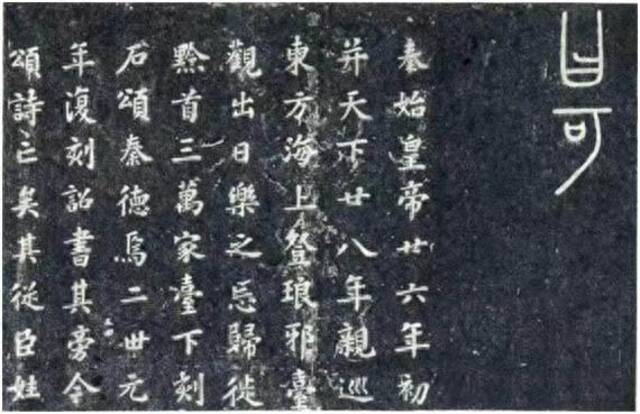 可
秦始皇帝廿六年初
并天下廿八年親巡
東方海上登琅邪臺
觀出日樂之忘歸徙
黔首三萬家臺下刻
石頌秦德焉二世元
年復刻詔書其旁今
頌詩亡矣其從臣姓